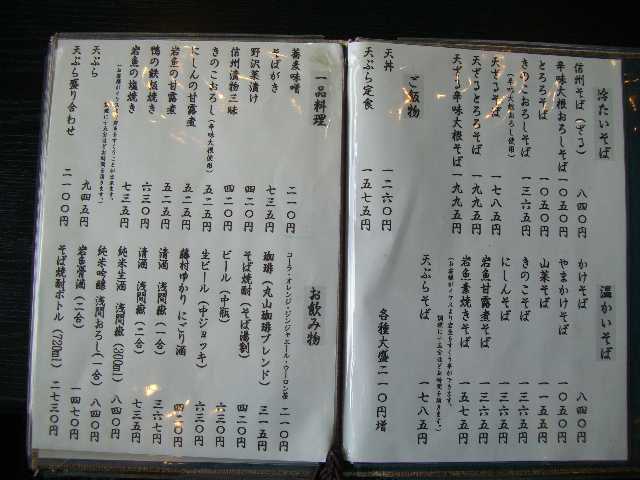 冷たいそば
信州そば(ざる) 八四〇円
辛味大根おろしそば 一〇五〇円
とろろそば 一〇五〇円
きのこおろしそば 一三六五円
(辛味大根おろし使用)
天ざるそば 一七八五円
天ざるとろろそば 一九九五円
天ざる辛味大根そば 一九九五円
ご飯物
天丼 一二六〇円
天ぷら定食 一五七五円
温かいそば
かけそば 八四〇円
やまかけそば 一〇五〇円
山菜そば 一三六五円
きのこそば 一三六五円
にしんそば 一三六五円
岩魚甘露煮そば 一三六五円
岩魚素焼きそば 一三六五円
天ぷらそば 一七八五円
各種大盛二一〇円増
一品料理
蕎麦味噌 二一〇円
そばがき 七三五円
野沢菜漬け 四二〇円
信州漬物三昧 四二〇円
きのこおろし(辛味大根使用) 五二五円
にしんの甘露煮 五二五円
岩魚の甘露煮 五二五円
鴨の鉄板焼き 六三〇円
岩魚の塩焼き 七三五円
天ぷら 九四五円
天ぷら盛り合わせ 二一〇〇円
お飲み物
コーラ・オレンジ・ジンジャエール・ウーロン茶 二一〇円
珈琲(丸山珈琲ブレンド) 三一五円
そば焼酎(そば湯割) 四二〇円
ビール(中瓶) 六三〇円
生ビール(中ジョッキ) 六三〇円
藤村ゆかり にごり酒 四二〇円
清酒 浅間嶽(一合) 三六七円
清酒 浅間嶽(二合) 七三五円
純米生酒 浅間嶽(300ml) 八四〇円
純米吟醸 浅間おろし(一合) 八四〇円
岩魚骨酒(二合) 一四七〇円
そば焼酎ボトル(720ml) 二七三〇円